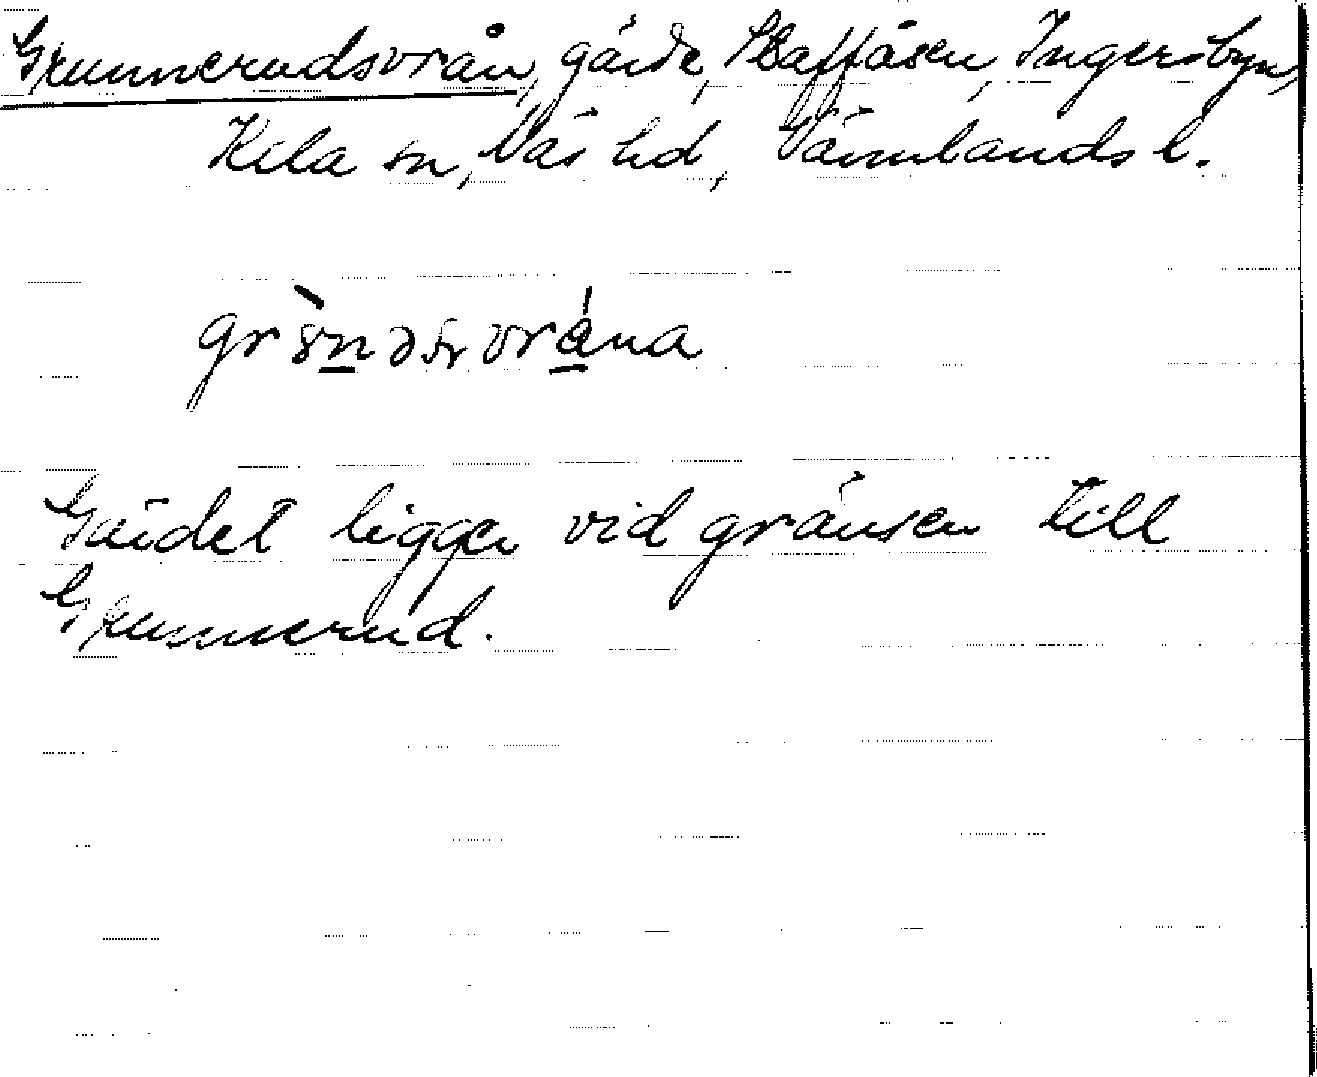 Grunnerudsvrån, gärde, Staffåsen, Ingersbyn,
Kila sn, Näs hd, Värmlands l.
Gärdet ligger vid gränsen till
Grunnerud.